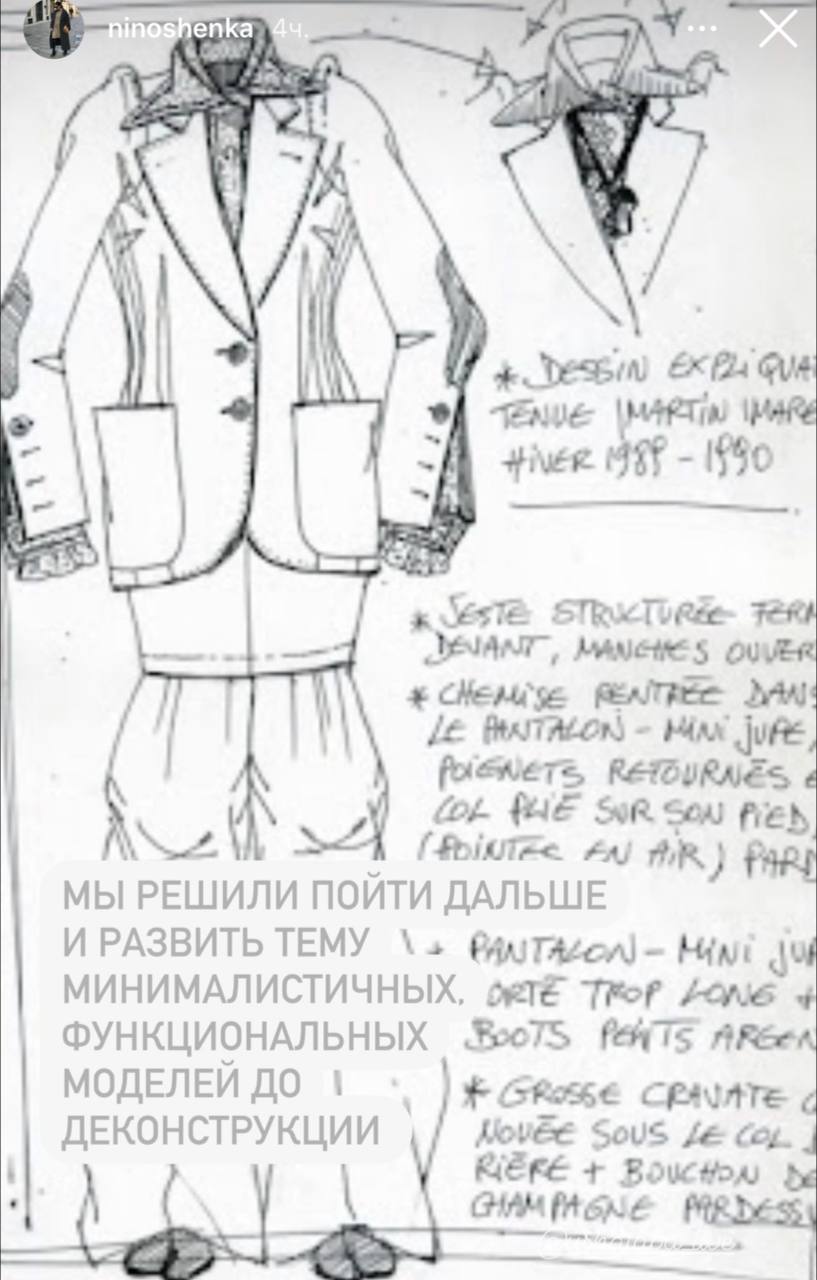 ninoshenka 4ч.
* DESSIN EXPLIQUA
TENUE MARTIN MARG
HIVER 1989 - 1990
* VESTE STRUCTURÉE FERM
DEVANT, MANCHES OUVER
* CHEMISE RENTRÉE DANS
LE PANTALON - MINI JUPE,
POIGNETS RETOURNÉS E
COL PLIÉ SUR SON PIED,
(POINTES EN AIR) PARD
МЫ РЕШИЛИ ПОЙТИ ДАЛЬШЕ
И РАЗВИТЬ ТЕМУ
МИНИМАЛИСТИЧНЫХ,
ФУНКЦИОНАЛЬНЫХ
МОДЕЛЕЙ ДО
ДЕКОНСТРУКЦИИ
* PANTALON - MINI JUP
ORTÉ TROP LONG +
BOOTS PEINTS ARGEN
* GROSSE CRAVATE
NOUÉE SOUS LE COL
RIÈRE + BOUCHON DE
CHAMPAGNE PARDESSU